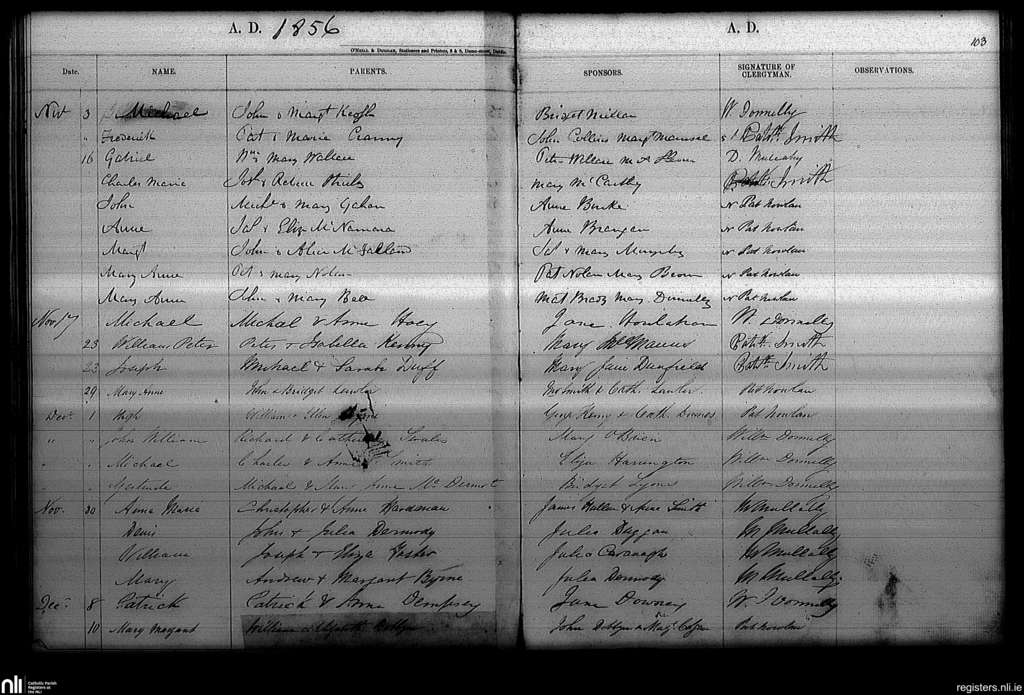 A. D. 1856 A. D.
O'NEILL & DUGGAN, Stationers and Printers, Dame-street, Dublin. 103
Date. NAME. PARENTS. SPONSORS. SIGNATURE OF CLERGYMAN. OBSERVATIONS.
Nov 3 Michael John & Margt Keogh Bridget W. Donnelly
" Frederick Pat & Maria John Collins Margt Patk. Smith
16 Gabriel Wm & Mary Wallace Peter Wallace D. Mulcahy
Charles Maria & Mary McCarthy Patk. Smith
John Michl & Mary Gahan Anne Burke Pat Nowlan
Anne & Eliza McNamara Anne Brangan Pat Nowlan
Margt John & Alice & Mary Murphy Pat Nowlan
Mary Anne Pat & Mary Nolan Pat Nolan Mary Brown Pat Nowlan
Mary Anne John & Mary Bell Mat Brady Mary Pat Nowlan
Nov 17 Michael Michael & Anne Hoey Jane Houlahan W. Donnelly
23 William Peter Peter & Isabella Kenny Mary McManus Patk. Smith
23 Joseph Michael & Sarah Duff Mary Jane Patk. Smith
29 Mary Anne John & Bridget Lawlor Smith & Cath. Lawler Pat Nowlan
Decr. 1 Hugh William & Ellen George Kenny & Cath. Downes Pat Nowlan
" " John William Richard & Catherine Mary O'Brien Willm Donnelly
" " Michael Charles & Anne Smith Eliza Harrington Willm Donnelly
" Gertrude Michael & Mary Jane McDermott Bridget Lyons Willm Donnelly
Nov. 30 Anna Maria Christopher & Anne Hardman James & Smith W Mullally
Denis John & Julia Dermody Julia Duggan W Mullally
William Joseph & Julia Cavanagh W Mullally
Mary Andrew & Margaret Byrne Julia Dermody W Mullally
Decr. 8 Patrick Patrick & Anne Dempsey Jane Downey W. Donnelly
10 Mary Margaret William & Elizabeth John Pat Nowlan
nli Catholic Parish Registers at the NLI registers.nli.ie